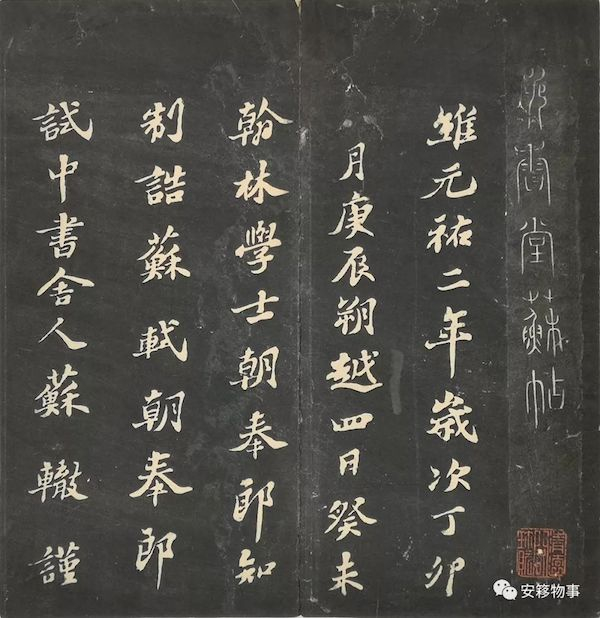 晚香堂蘇帖
維元祐二年歲次丁卯
月庚辰朔越四日癸未
翰林學士朝奉郎知
制誥蘇軾朝奉郎
試中書舍人蘇轍謹
安簃物事